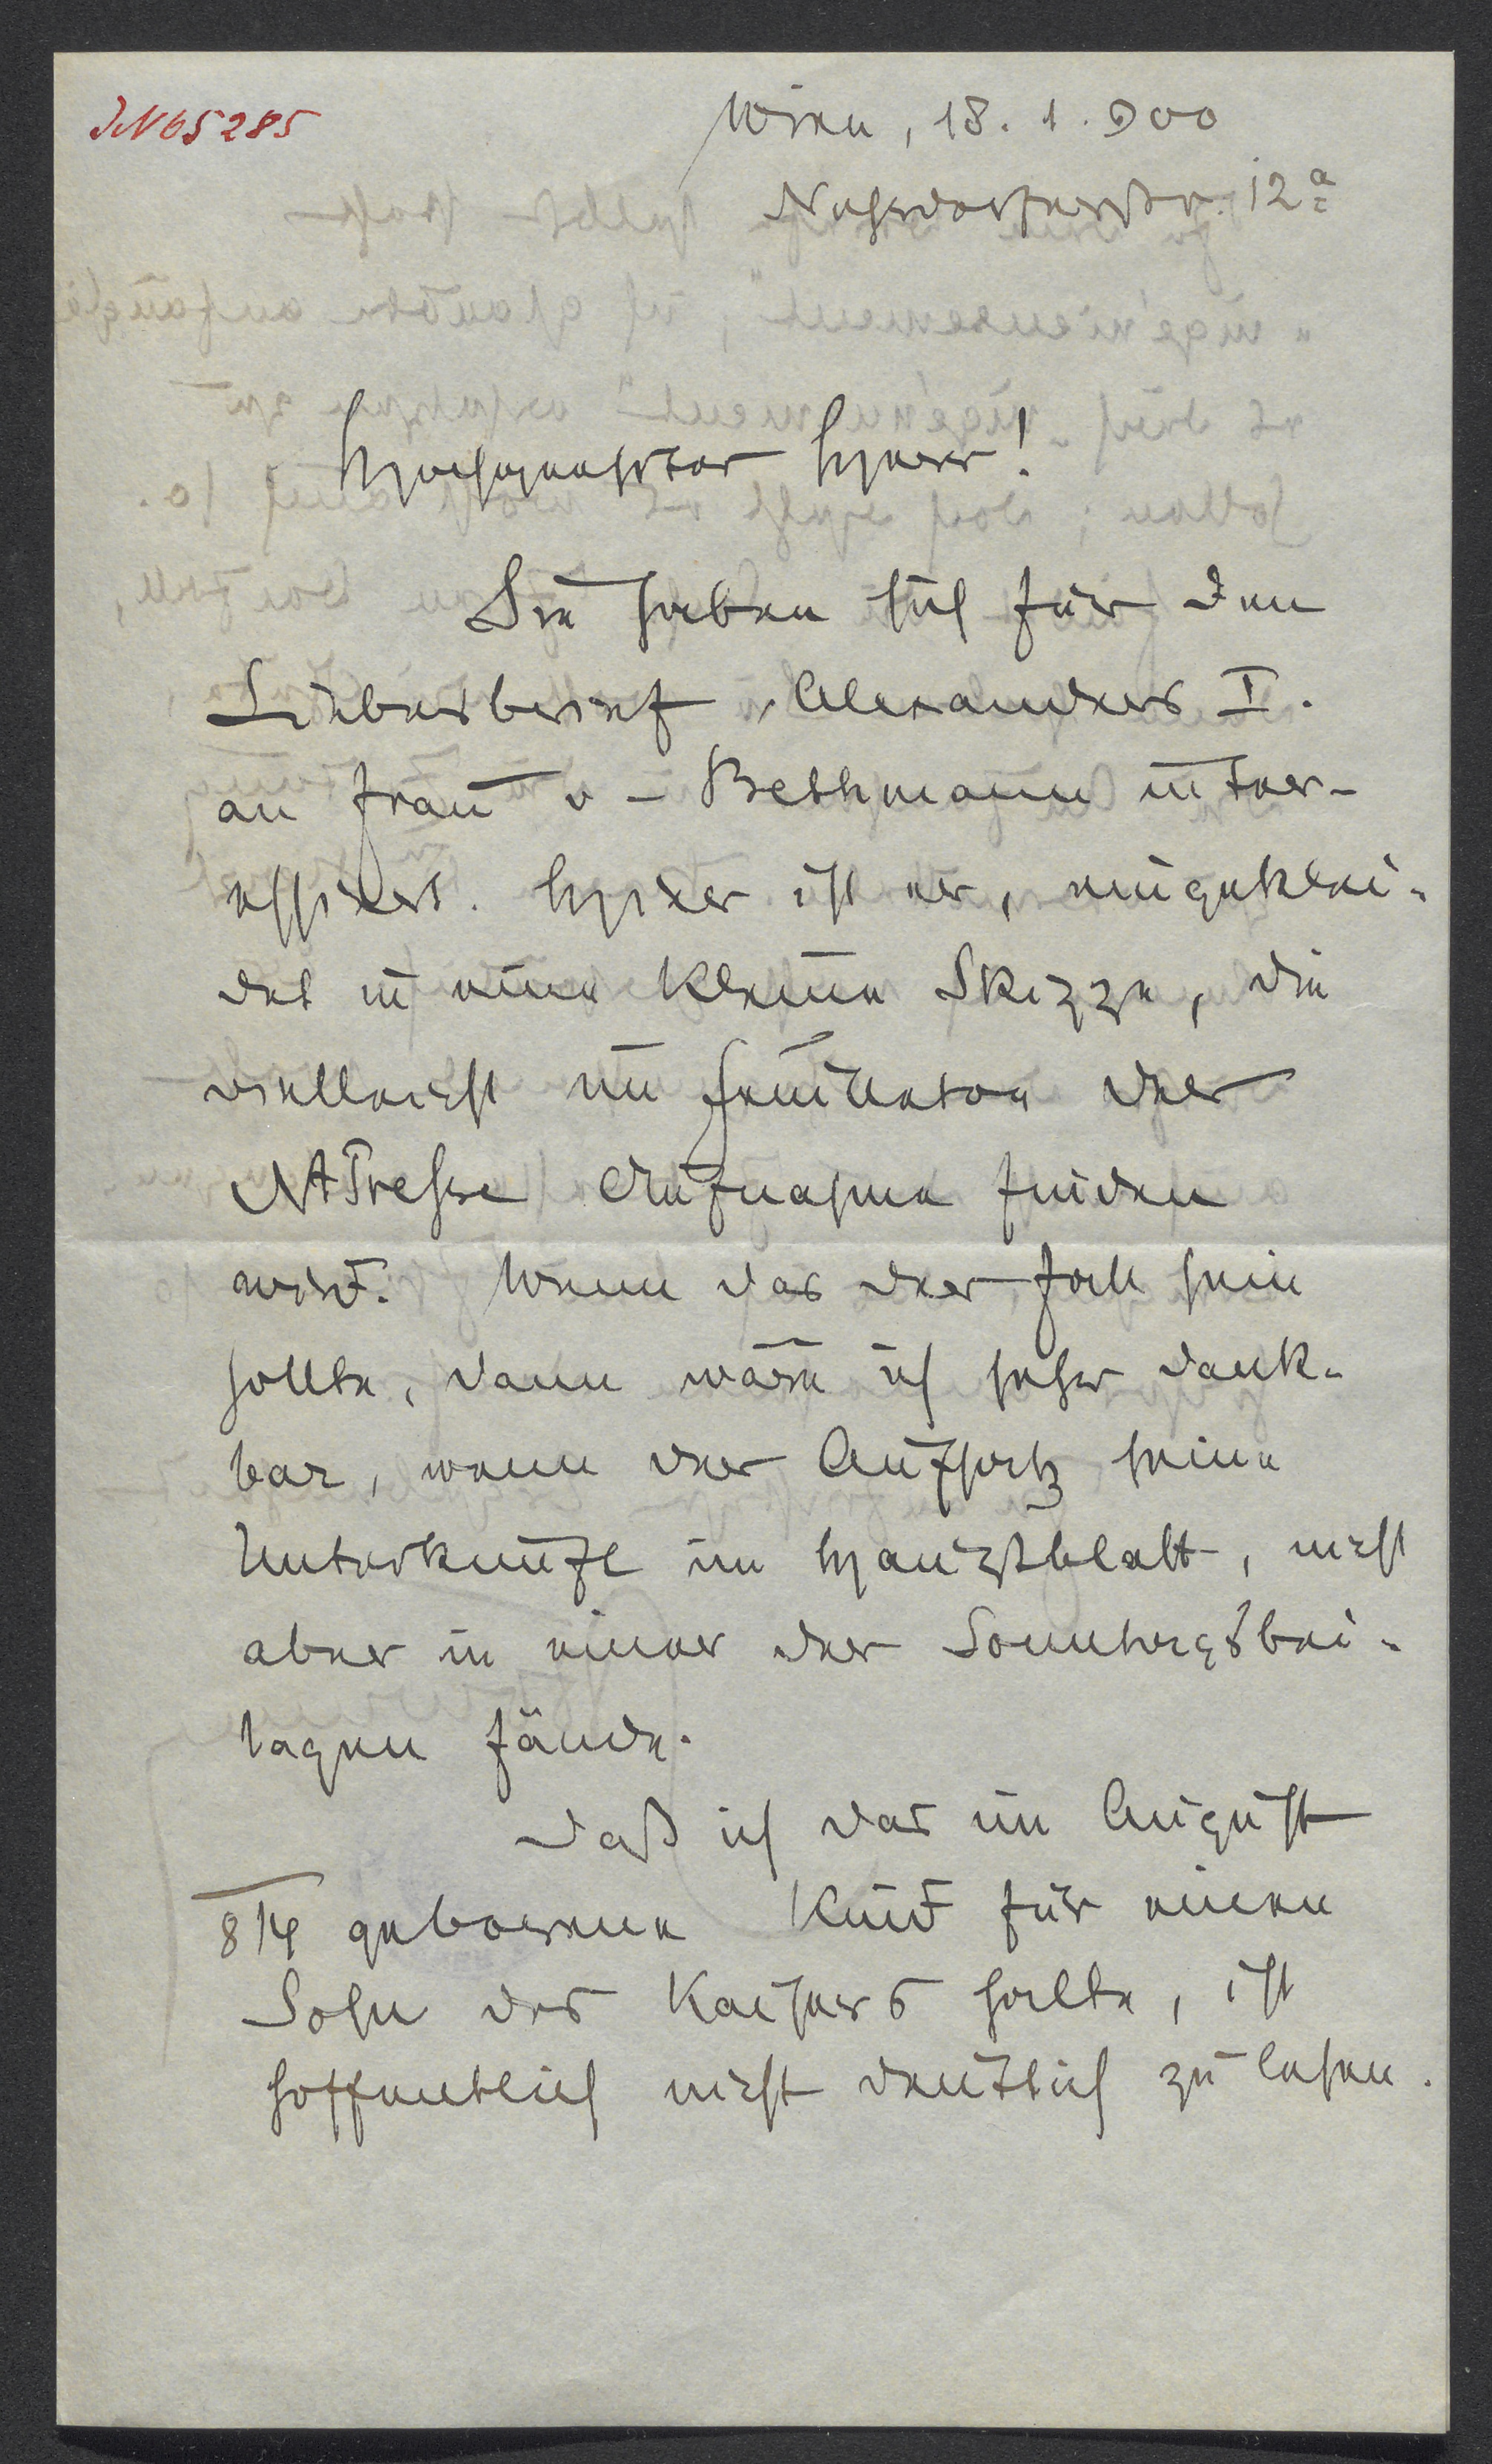 JN 65285
Wien, 18. 1. 900
Nussdorferstr. 12a
Hochgeehrter Herr!
Sie haben sich für den
Liebesbrief Alexanders I.
an Frau v. Bethmann inter-
essiert. Hier ist er, eingeklei-
det in eine kleine Skizze, die
vielleicht im Feuilleton der
N f Presse Aufnahme finden
wird. Wenn das der Fall sein
sollte, dann wäre ich sehr dank-
bar, wenn der Aufsatz seine
Unterkunft im Hauptblatt, nicht
aber in einer der Sonntagsbei-
lagen fände.
Daß ich das im August
814 geborene Kind für einen
Sohn des Kaisers halte, ist
hoffentlich nicht deutlich zu lesen.